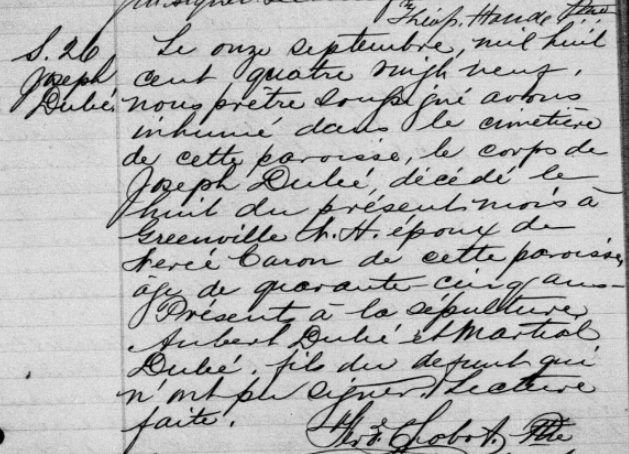 Théop. Houde Ptre
S. 26
Joseph
Dubé
Le onze septembre, mil huit
cent quatre vingt neuf,
nous prêtre soussigné avons
inhumé dans le cimetière
de cette paroisse, le corps de
Joseph Dubé, décédé le
huit du présent mois à
Greenville N.H. époux de
Mercé Caron de cette paroisse,
âgé de quarante-cinq ans.
Présents à la sépulture,
Aubert Dubé et Martial
Dubé, fils du defunt qui
n'ont pu signer. Lecture
faite.
Ferd. Chabot, Ptre